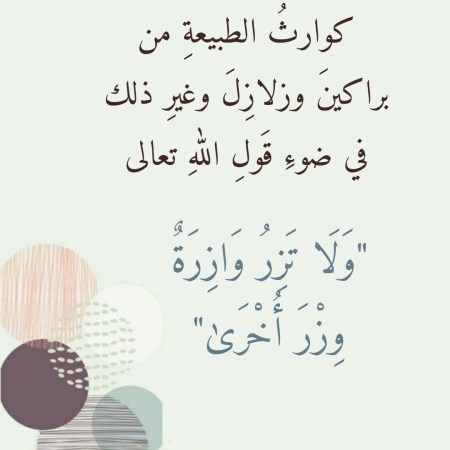 كوارثُ الطبيعةِ من
براكينَ وزلازِلَ وغيرِ ذلك
في ضوءِ قَولِ اللهِ تعالى
"وَلَا تَزِرُ وَازِرَةٌ
وِزْرَ أُخْرَىٰ"